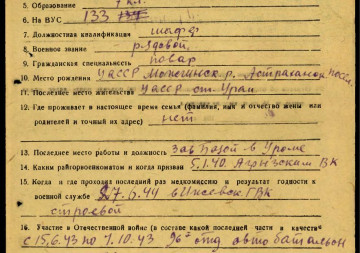 5. Образование 7 кл.
6. На ВУС 133
7. Должностная квалификация шофер
8. Военное звание рядовой
9. Гражданская специальность повар
10. Место рождения УАССР р.
11. Последнее место жительства УАССР ст. Урал
12. Где проживает в настоящее время семья (фамилия, имя и отчество жены или
родителей и точный их адрес) нет
13. Последнее место работы и должность Зав базой в
14. Каким райгорвоенкоматом и когда призван 5.1.40. Агрызским ВК
15. Когда и где проходил последний раз медкомиссию и результат годности к
военной службе 27.6.44 в Ижевск. ГВК
строевой
16. Участие в Отечественной войне (в составе какой последней части и в качестве
с 15.6.43 по 7.10.43 96 отд автобатальон